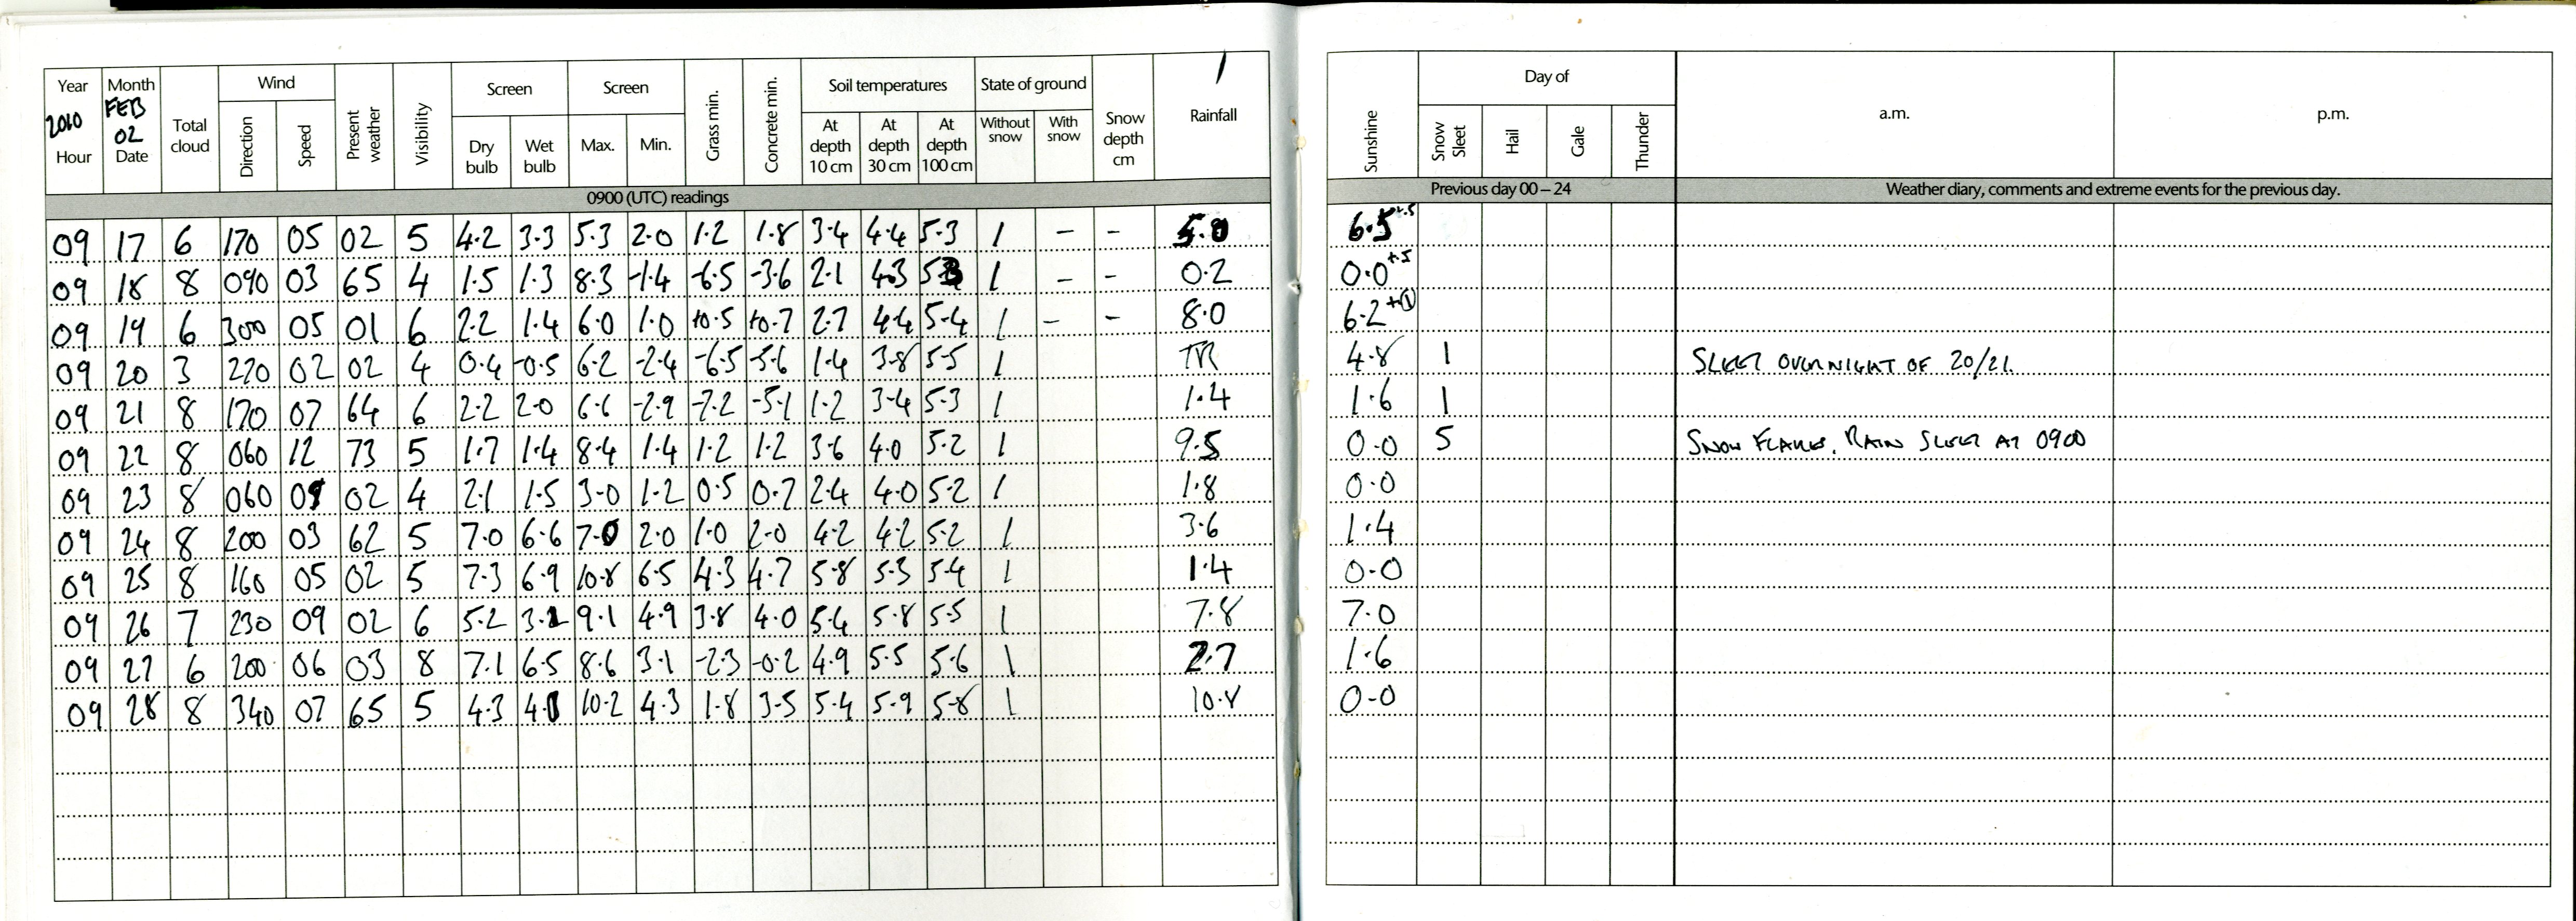 Year Month Total cloud Wind Present weather Visibility Screen Screen Grass min. Concrete min. Soil temperatures State of ground Snow depth cm Rainfall Sunshine Day of a.m. p.m.
2010 FEB 02
Hour Date Direction Speed Dry bulb Wet bulb Max. Min. At depth 10 cm At depth 30 cm At depth 100 cm Without snow With snow Snow Sleet Hail Gale Thunder
0900 (UTC) readings Previous day 00 – 24 Weather diary, comments and extreme events for the previous day.
09 17 6 170 05 02 5 4.2 3.3 5.3 2.0 1.2 1.8 3.4 4.4 5.3 1 - - 5.0 6.5
09 18 8 090 03 65 4 1.5 1.3 8.3 -1.4 -6.5 -3.6 2.1 4.3 1 - - 0.2 0.0 +.5
09 19 6 300 05 01 6 2.2 1.4 6.0 1.0 +0.5 +0.7 2.7 4.4 5.4 1 - - 8.0 6.2 +1
09 20 3 270 02 02 4 0.4 -0.5 6.2 -2.4 -6.5 -5.6 1.4 3.8 5.5 1 TR 4.8 1 SLEET OVERNIGHT OF 20/21.
09 21 8 170 07 64 6 2.2 2.0 6.6 -2.9 -7.2 -5.1 1.2 3.4 5.3 1 1.4 1.6 1
09 22 8 060 12 73 5 1.7 1.4 8.4 1.4 1.2 1.2 3.6 4.0 5.2 1 9.5 0.0 5 SNOW FLAKES. RAIN SLEET AT 0900
09 23 8 060 02 4 2.1 1.5 3.0 1.2 0.5 0.7 2.4 4.0 5.2 1 1.8 0.0
09 24 8 200 03 62 5 7.0 6.6 7.0 2.0 1.0 2.0 4.2 4.2 5.2 1 3.6 1.4
09 25 8 160 05 02 5 7.3 6.9 10.8 6.5 4.3 4.7 5.8 5.3 5.4 1 1.4 0.0
09 26 7 230 09 02 6 5.2 9.1 4.9 3.8 4.0 5.4 5.8 5.5 1 7.8 7.0
09 27 6 200 06 03 8 7.1 6.5 8.6 3.1 -2.3 -0.2 4.9 5.5 5.6 1 2.7 1.6
09 28 8 340 07 65 5 4.3 10.2 4.3 1.8 3.5 5.4 5.9 5.8 1 10.8 0.0